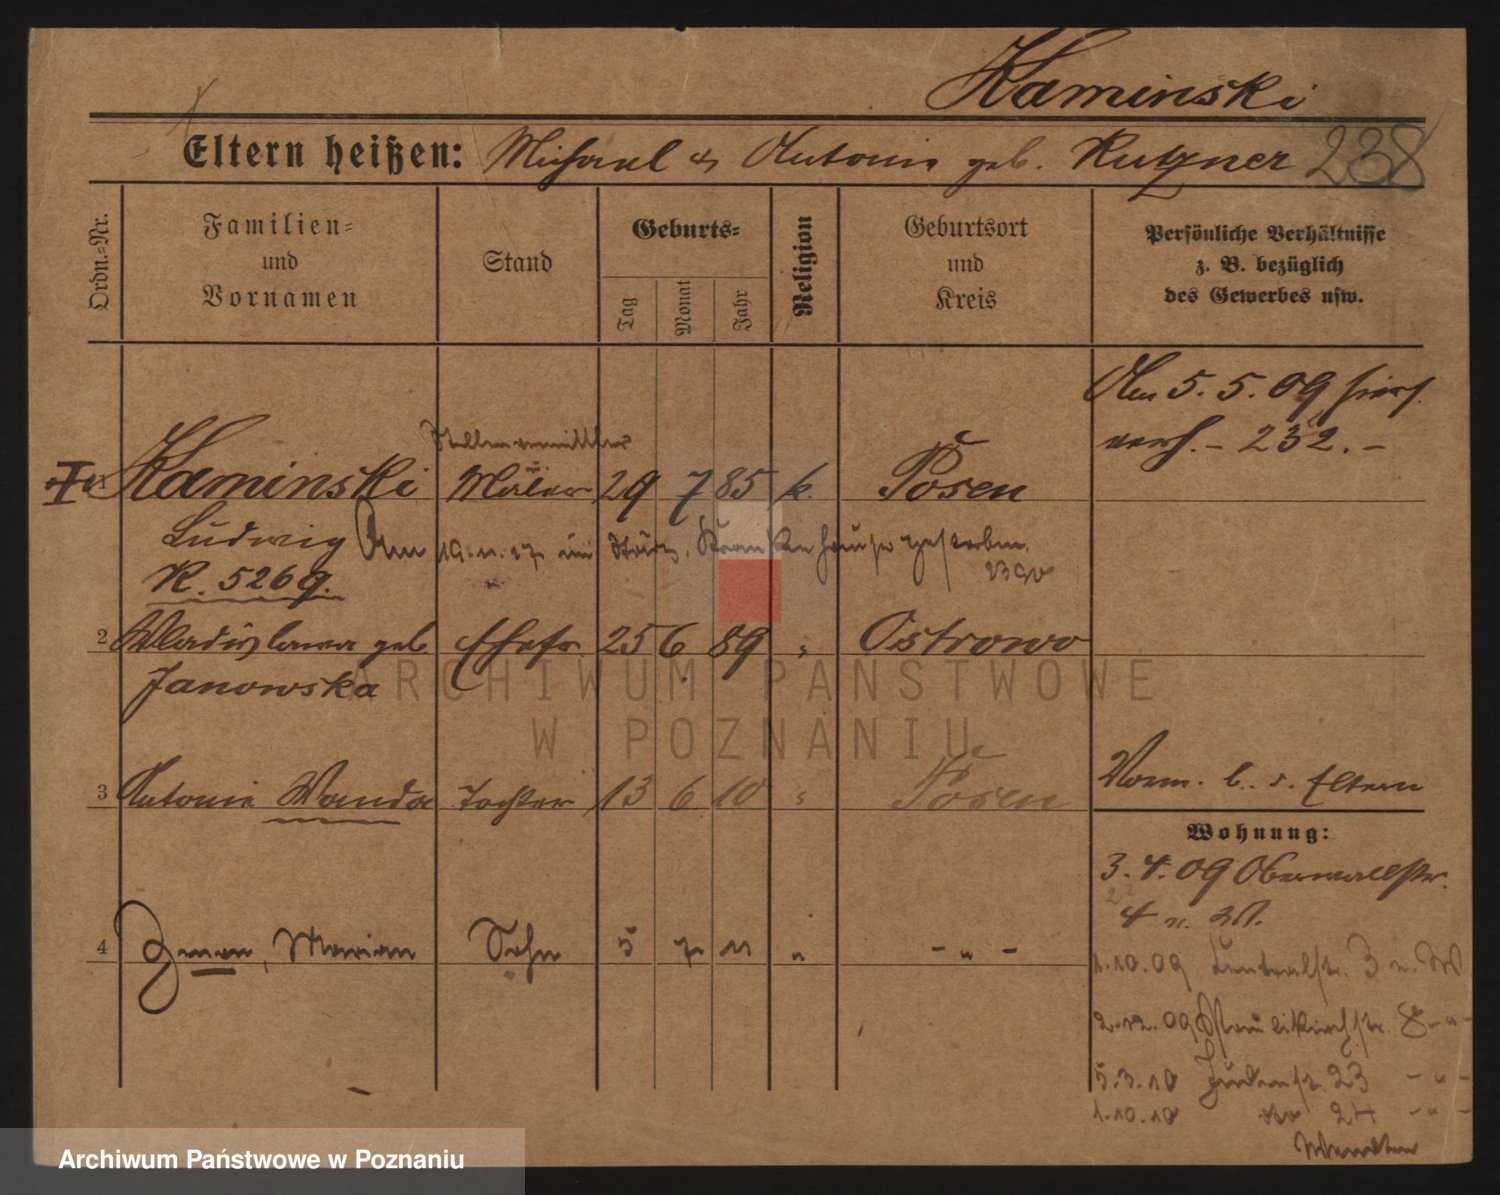 Kaminski
Eltern heißen: Michael & Antonie geb. Kutzner 238
Ordn.-Nr.
Familien-
und
Vornamen
Stand
Geburts-
Tag
Monat
Jahr
Religion
Geburtsort
und
Kreis
Persönliche Verhältnisse
z. B. bezüglich
des Gewerbes usw.
Am 5. 5. 09 hier
verh. - 232. -
Stellenvermittler
1 Kaminski Maler 29 7 85 k. Posen
Ludwig Am 19. 11. 17 im Städt. Krankenhause gestorben.
K. 5269.
2 Wladislawa geb Ehefr. 25 6 89 " Ostrowo
Janowska
3 Antonie Wanda Tochter 13 6 10 " Posen
Vorm. b. d. Eltern
Wohnung:
3. 4. 09 Oberwallstr.
4 n.
4 Zenon, Marian Sohn 5 7 11 " - " -
1. 10. 09 3 n. W
2. 12. 09 Paulikirchstr. 8 - " -
5. 3. 10 Judenstr. 23 - " -
1. 10. 10 do 24 - " -
wenden
ARCHIWUM PAŃSTWOWE
W POZNANIU
Archiwum Państwowe w Poznaniu